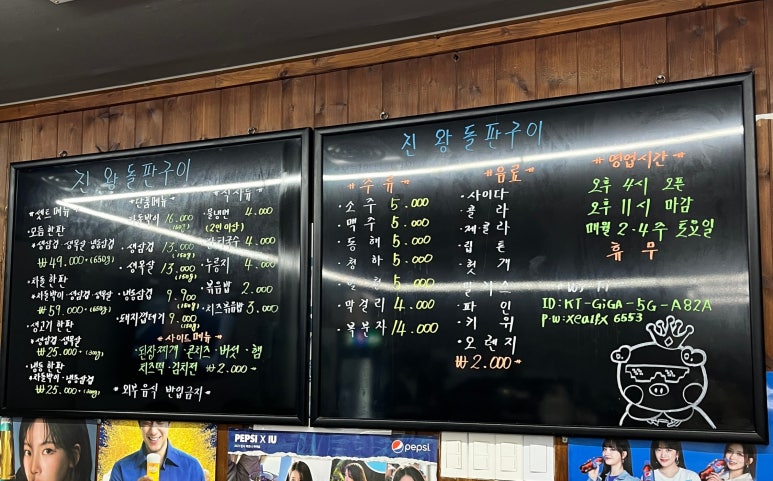 진 왕돌판구이
*셋트 메뉴*
모듬 한판
·생삼겹·생목살·냉동삼겹
₩49.000
차돌 한판
·차돌박이·생삼겹·생목살
₩59.000
·생고기 한판
·생삼겹·생목살
₩25.000
·냉동 한판
차돌박이·냉동삼겹
₩25.000
*단품메뉴*
차돌박이 16.000
(150g)
·생삼겹 13.000
(150g)
·생목살 13.000
(150g)
·냉동삼겹 9.900
(150g)
·돼지껍데기 9.000
*식사류*
물냉면 4.000
(2인 이상)
잔치국수 4.000
·누룽지 4.000
·볶음밥 2.000
·치즈볶음밥 3.000
*사이드메뉴*
·된장찌개·콘치즈·버섯·햄
치즈떡·김치전 ₩2.000
*외부음식 반입금지*
진 왕돌판구이
*주류*
·소주 5.000
·맥주 5.000
·동해 5.000
·청하 5.000
5.000
·막걸리 4.000
·복분자 14.000
*음료*
·사이다
·콜라
·제콜라
·립톤
·헛개
·밀키스
·파인
·키위
·오렌지
₩2.000
*영업시간*
오후 4시 오픈
오후 11시 마감
매월 2·4주 토요일
휴무
ID:KT-GiGA-5G-A82A
p.w:xealfx 6553
PEPSI X IU
pepsi